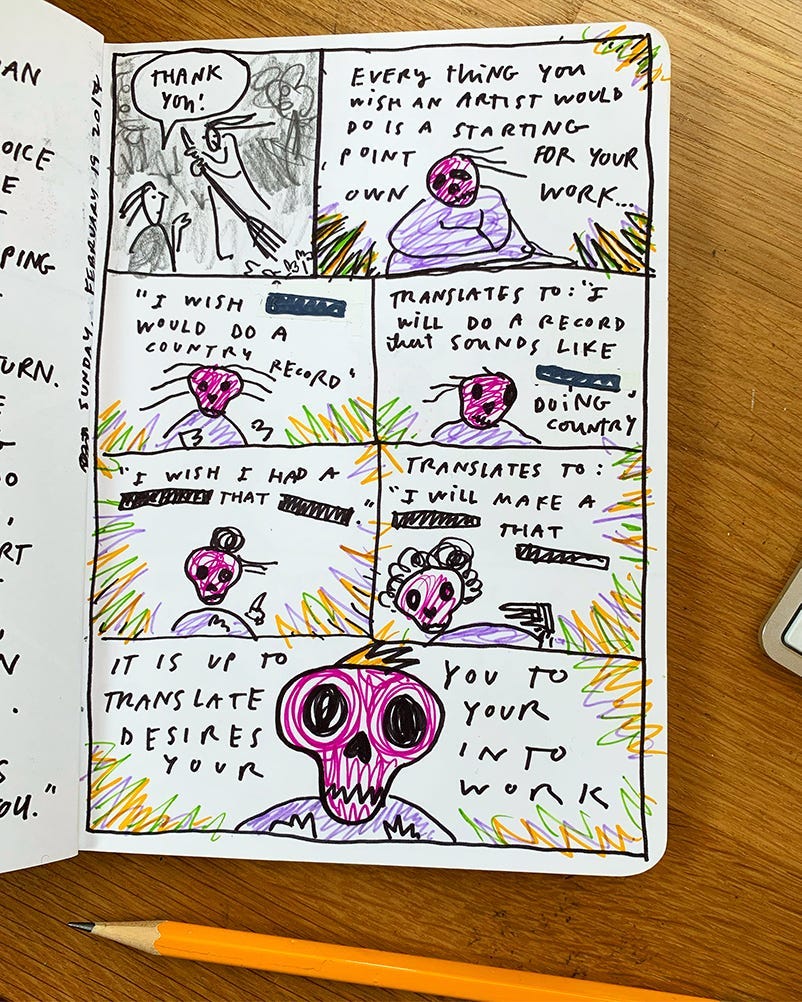 AN
OICE
E
PING
TURN.
E
O
RT
N
S
OU."
SUNDAY. FEBRUARY 19
THANK
YOU!
EVERY thing YOU
WISH AN ARTIST WOULD
DO IS A STARTING
POINT FOR YOUR
OWN WORK...
"I WISH
WOULD DO A
COUNTRY RECORD"
TRANSLATES TO: "I
WILL DO A RECORD
that SOUNDS LIKE
DOING
COUNTRY"
"I WISH I HAD A
THAT ."
TRANSLATES TO:
"I WILL MAKE A
THAT
IT IS UP TO YOU TO
TRANSLATE YOUR
DESIRES INTO
YOUR WORK